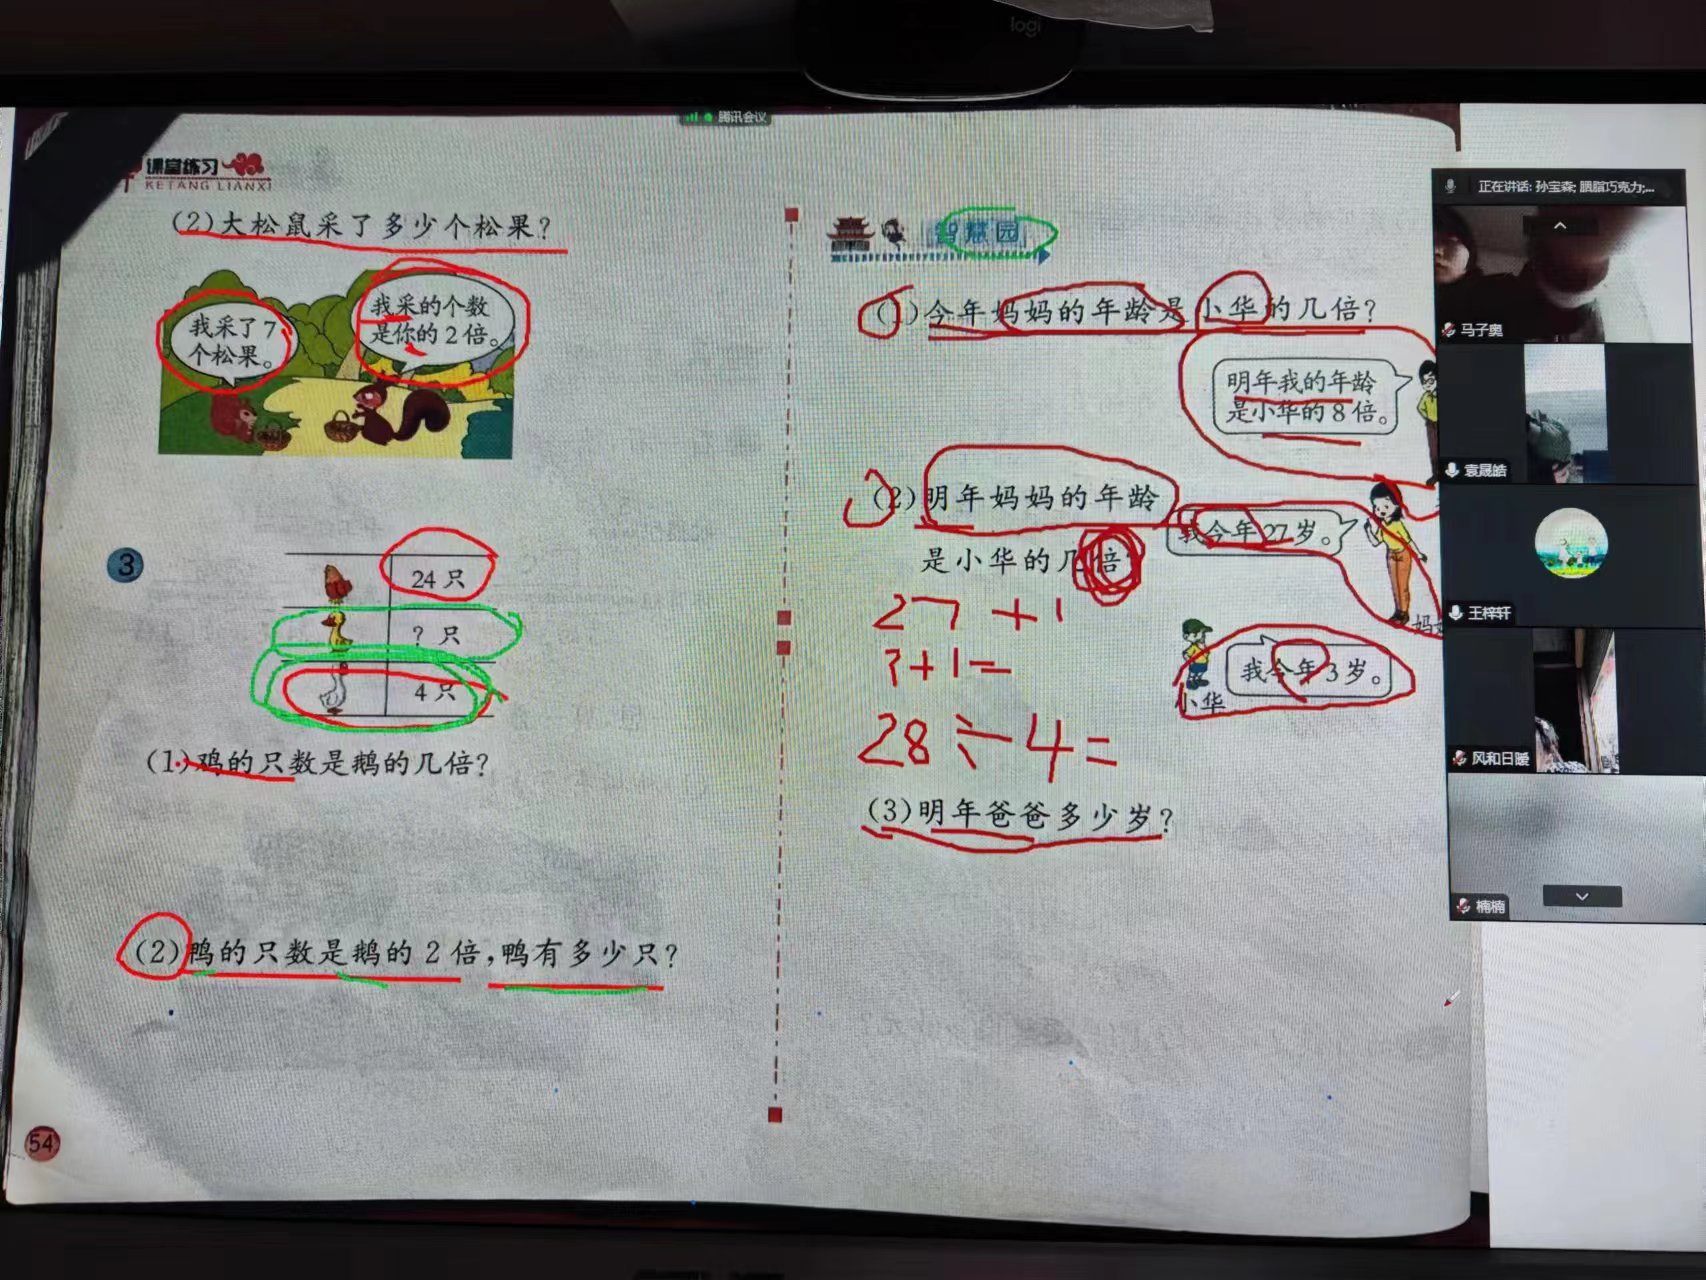 logi
腾讯会议
课堂练习
KETANG LIANXI
(2)大松鼠采了多少个松果？
我采了7
个松果。
我采的个数
是你的2倍。
3
24只
？只
4只
(1)鸡的只数是鹅的几倍？
(2)鸭的只数是鹅的2倍,鸭有多少只？
54
智慧园
(1)今年妈妈的年龄是小华的几倍？
明年我的年龄
是小华的8倍。
(2)明年妈妈的年龄
是小华的几倍
我今年27岁。
妈
27+1
3+1=
我今年3岁。
小华
28÷4=
(3)明年爸爸多少岁？
正在讲话: 孙宝森; 胭脂巧克力;...
马子奥
袁晟皓
王梓轩
风和日暖
楠楠